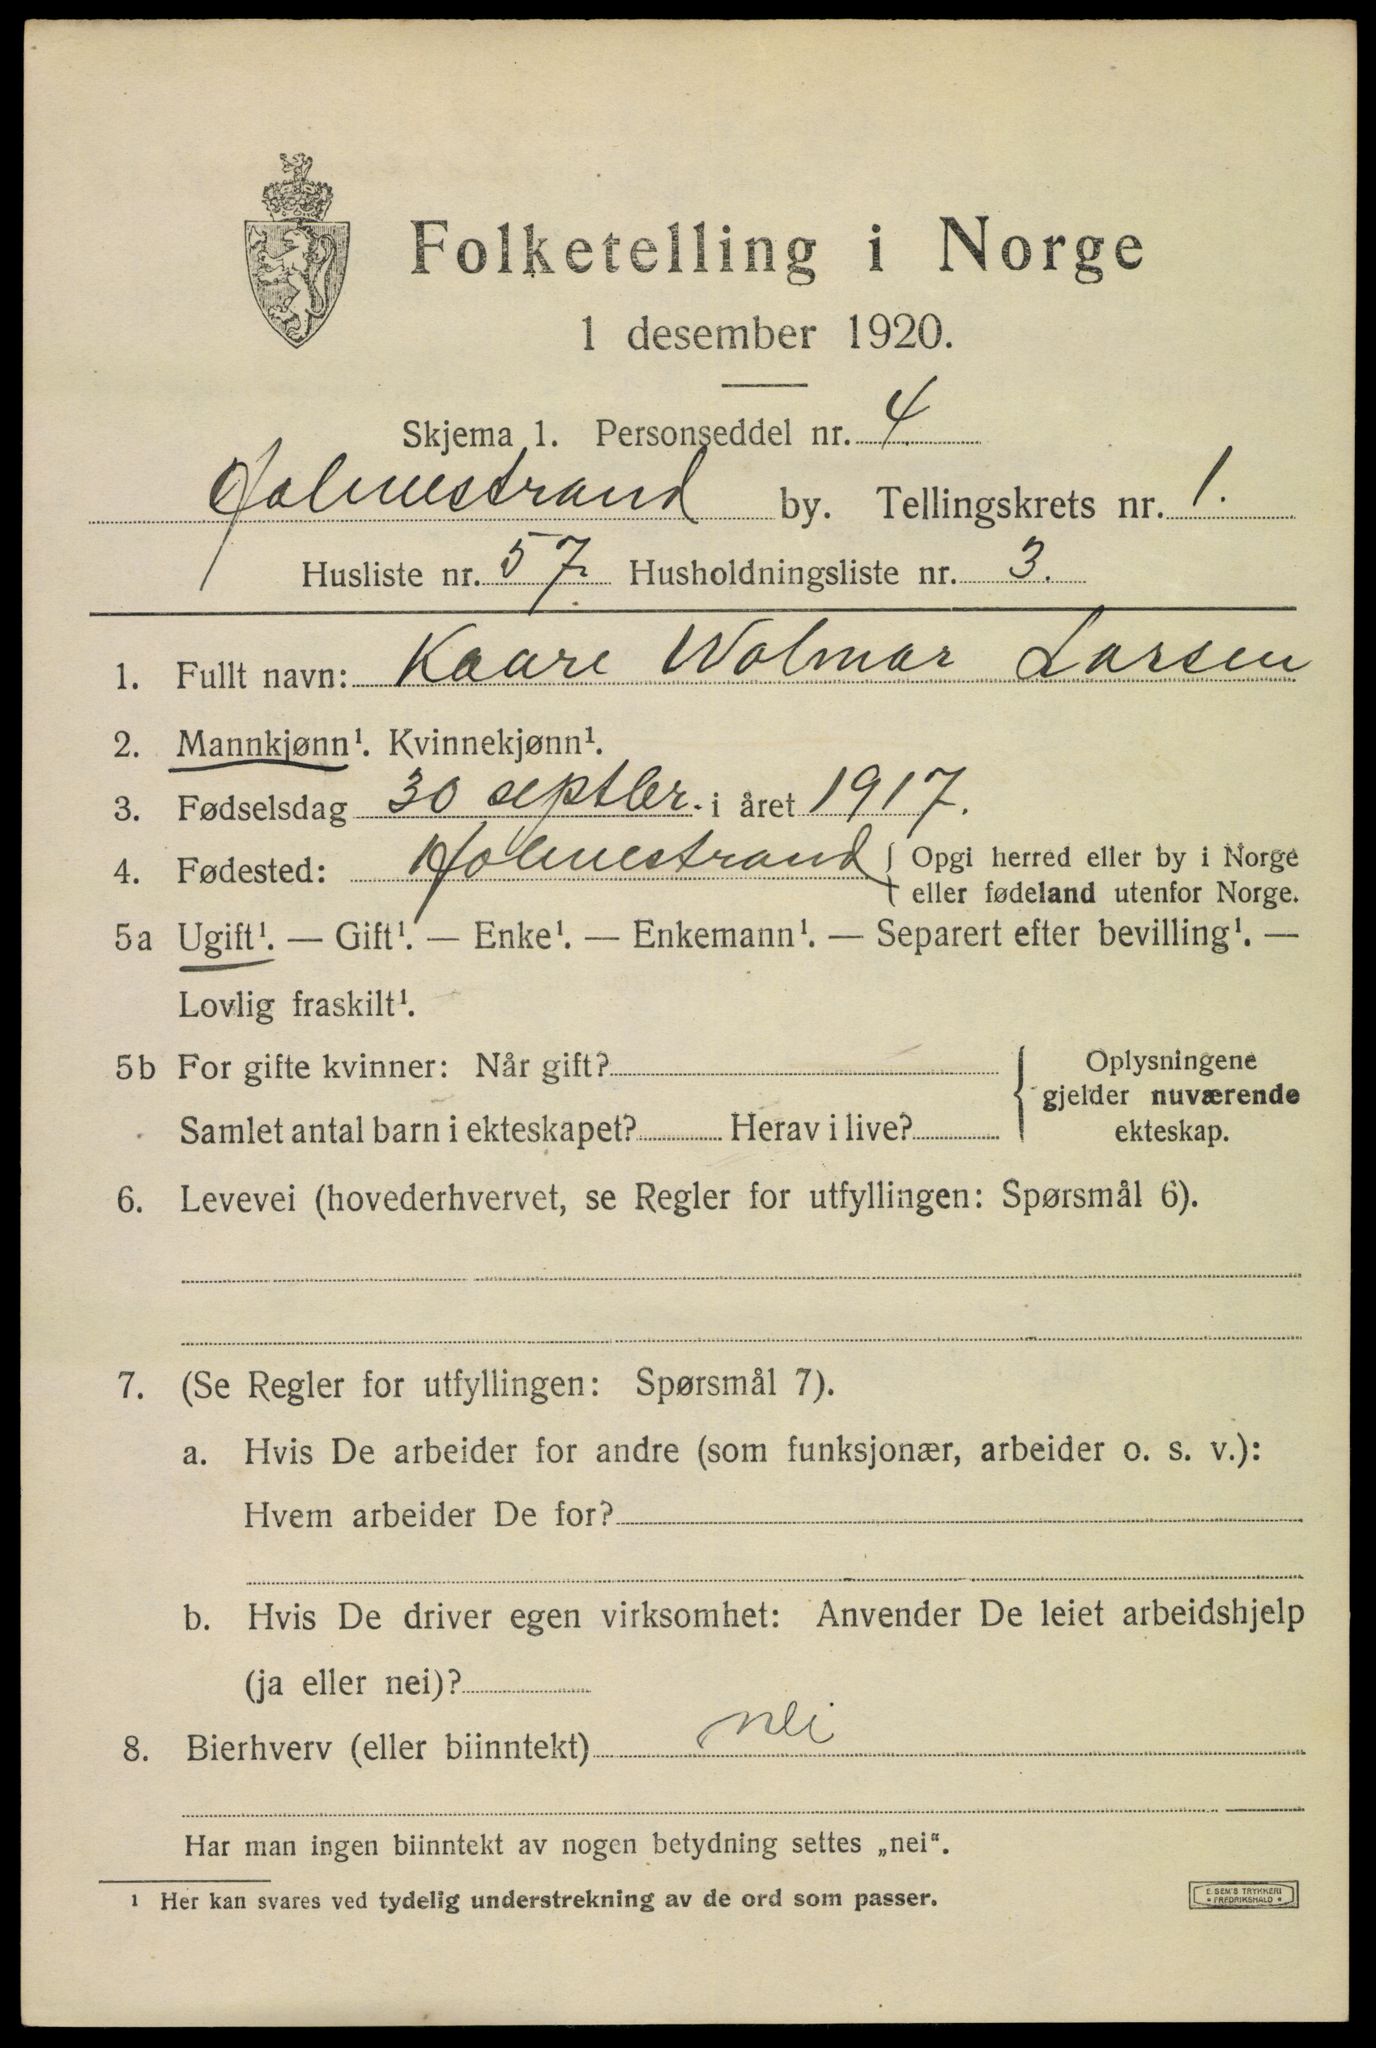 Folketelling i Norge
1 desember 1920.
Skjema 1. Personseddel nr. 4.
Holmestrand by. Tellingskrets nr. 1.
Husliste nr. 57. Husholdningsliste nr. 3.
1. Fullt navn: Kaare Wolmar Larsen
2. Mannkjønn¹. Kvinnekjønn¹.
3. Fødselsdag 30 septbr. i året 1917.
4. Fødested: Holmestrand { Opgi herred eller by i Norge
eller fødeland utenfor Norge.
5a Ugift¹. — Gift¹. — Enke¹. — Enkemann¹. — Separert efter bevilling¹. —
Lovlig fraskilt¹.
5b For gifte kvinner: Når gift?
Samlet antal barn i ekteskapet? Herav i live?
{ Oplysningene
gjelder nuværende
ekteskap.
6. Levevei (hovederhvervet, se Regler for utfyllingen: Spørsmål 6).
7. (Se Regler for utfyllingen: Spørsmål 7).
a. Hvis De arbeider for andre (som funksjonær, arbeider o. s. v.):
Hvem arbeider De for?
b. Hvis De driver egen virksomhet: Anvender De leiet arbeidshjelp
(ja eller nei)?
8. Bierhverv (eller biinntekt) nei
Har man ingen biinntekt av nogen betydning settes „nei“.
¹ Her kan svares ved tydelig understrekning av de ord som passer.
E. SEM'S TRYKKERI
• FREDRIKSHALD •